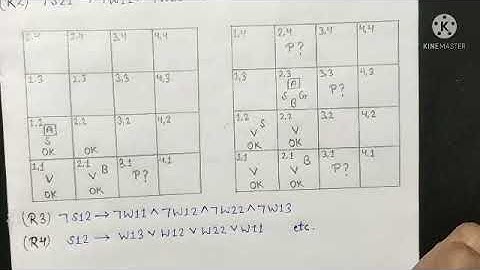 (R2) ¬S21
1,4 2,4 3,4 4,4
1,3 2,3 3,3 4,3
1,2 A S OK 2,2 OK 3,2 4,2
1,1 V OK 2,1 B V OK 3,1 P? 4,1
1,4 2,4 P? 3,4 4,4
1,3 2,3 A S G B 3,3 P? 4,3
1,2 S V OK 2,2 V OK 3,2 4,2
1,1 V OK 2,1 B V OK 3,1 P? 4,1
(R3) ¬S12 → ¬W11 ∧ ¬W12 ∧ ¬W22 ∧ ¬W13
(R4) S12 → W13 ∨ W12 ∨ W22 ∨ W11 etc.
K
KINEMASTER